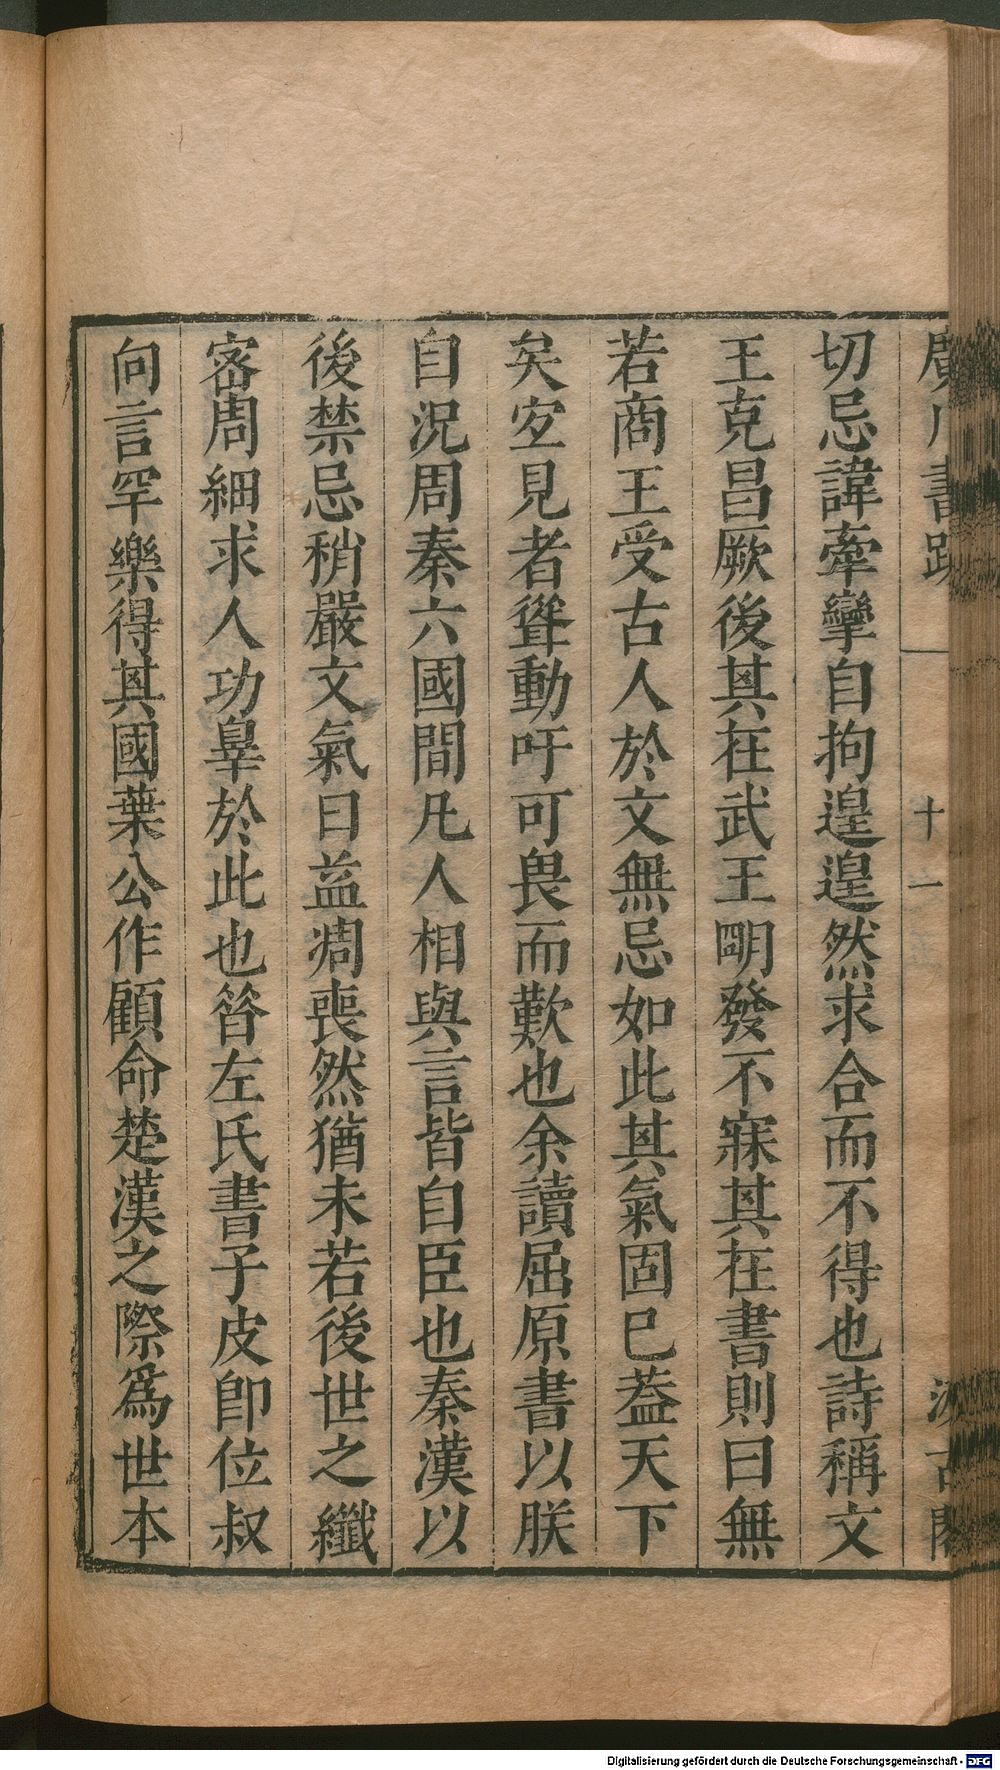 廣川書跋 十一 汲古閣
切忌諱牽攣自拘遑遑然求合而不得也詩稱文
王克昌厥後其在武王明發不寐其在書則曰無
若商王受古人於文無忌如此其氣固已蓋天下
矣宐見者聳動吁可畏而歎也余讀屈原書以朕
自況周秦六國間凡人相與言皆自臣也秦漢以
後禁忌稍嚴文氣日益凋喪然猶未若後世之纖
宻周細求人功辠於此也昝左氏書子皮卽位叔
向言罕樂得其國葉公作顧命楚漢之際爲世本
Digitalisierung gefördert durch die Deutsche Forschungsgemeinschaft - DFG